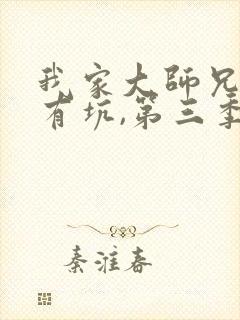 我家大师兄
有坑,第三季
秦淮春